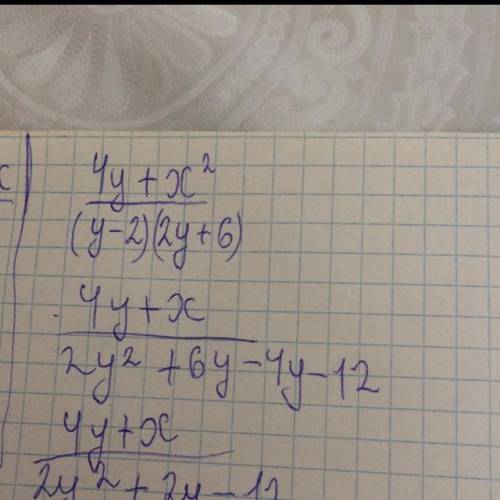 x
4y + x²
(y-2)(2y+6)
4y + x
2y² + 6y - 4y - 12
4y + x
2y² + 2y - 12